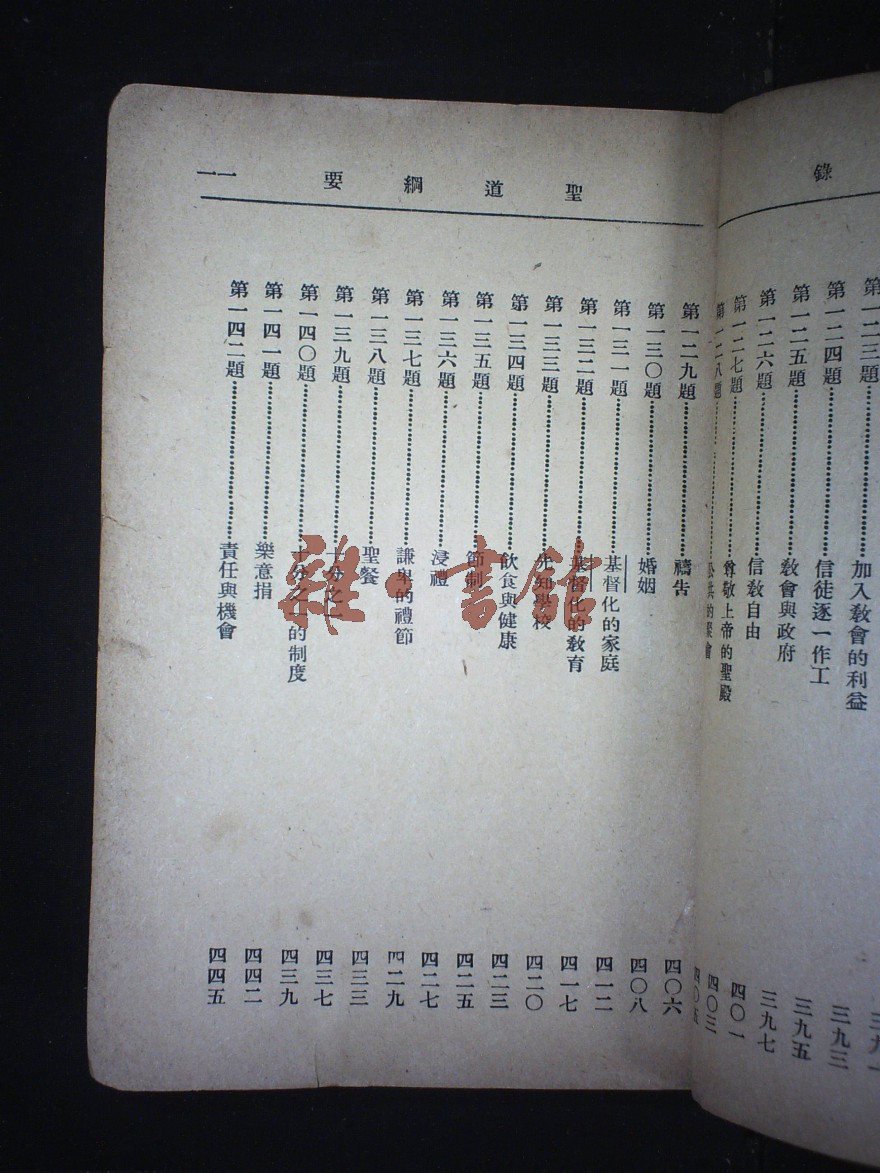 錄
第一二三題 加入教會的利益 三九三
第一二四題 信徒逐一作工 三九五
第一二五題 教會與政府 三九七
第一二六題 信教自由 四〇一
第一二七題 尊敬上帝的聖殿 四〇三
第一二八題 公共的聚會 四〇五
聖道綱要 一一
第一二九題 禱吿 四〇六
第一三〇題 婚姻 四〇八
第一三一題 基督化的家庭 四一二
第一三二題 基督化的教育 四一七
第一三三題 先知學校 四二〇
第一三四題 飲食與健康 四二三
第一三五題 節制 四二五
第一三六題 浸禮 四二七
第一三七題 謙卑的禮節 四二九
第一三八題 聖餐 四三三
第一三九題 十分之一 四三七
第一四〇題 十分之一的制度 四三九
第一四一題 樂意捐 四四二
第一四二題 責任與機會 四四五
雜·書館